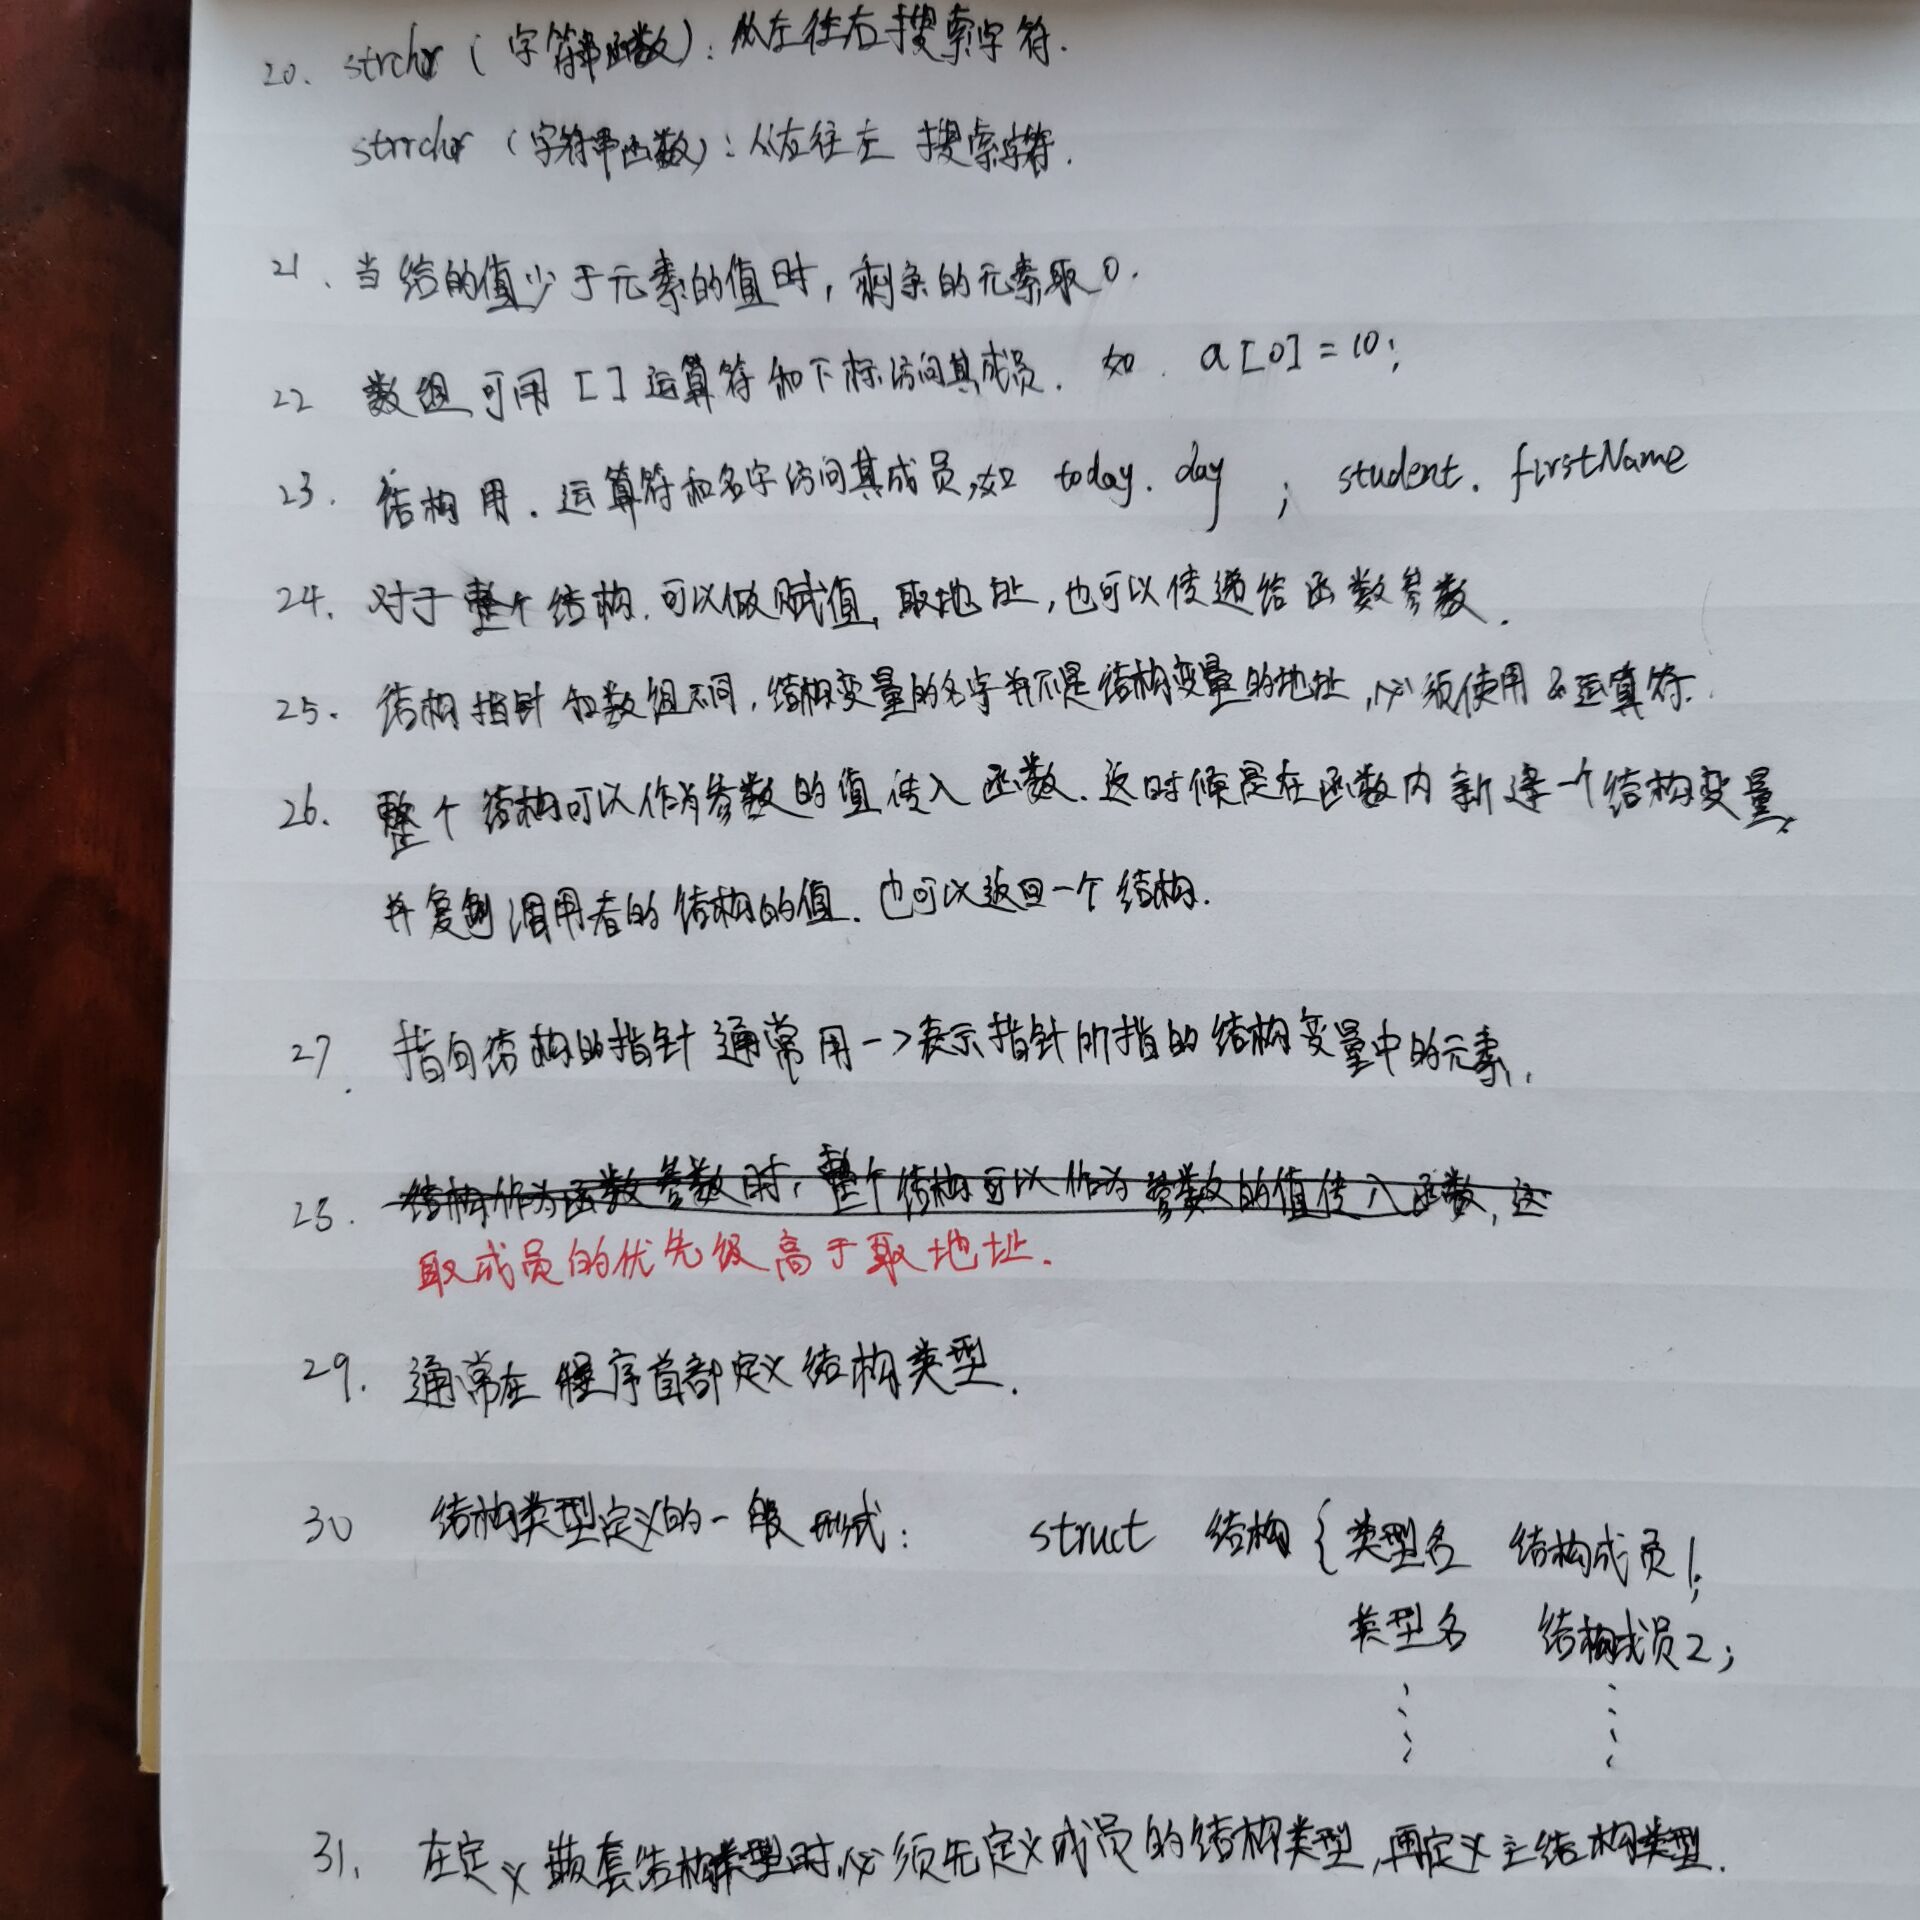 20. strchr (字符串函数): 从左往右搜索字符.
strrchr (字符串函数): 从右往左 搜索字符.
21. 当给的值少于元素的值时, 剩余的元素取0.
22 数组可用[]运算符和下标访问其成员. 如. a[0]=10;
23. 结构用.运算符和名字访问其成员,如 today.day ; student.firstName
24. 对于整个结构.可以做赋值,取地址,也可以传递给函数参数.
25. 结构指针和数组不同,结构变量的名字并不是结构变量的地址,必须使用&运算符.
26. 整个结构可以作为参数的值传入函数.这时候是在函数内新建一个结构变量,
并复制调用者的结构的值.也可以返回一个结构.
27. 指向结构的指针通常用->表示指针所指的结构变量中的元素.
28. 结构作为函数参数时,整个结构可以作为参数的值传入函数,这
取成员的优先级高于取地址.
29. 通常在程序首部定义结构类型.
30 结构类型定义的一般形式: struct 结构{类型名 结构成员1;
类型名 结构成员2;
⋮ ⋮
31. 在定义嵌套结构类型时,必须先定义成员的结构类型,再定义主结构类型.